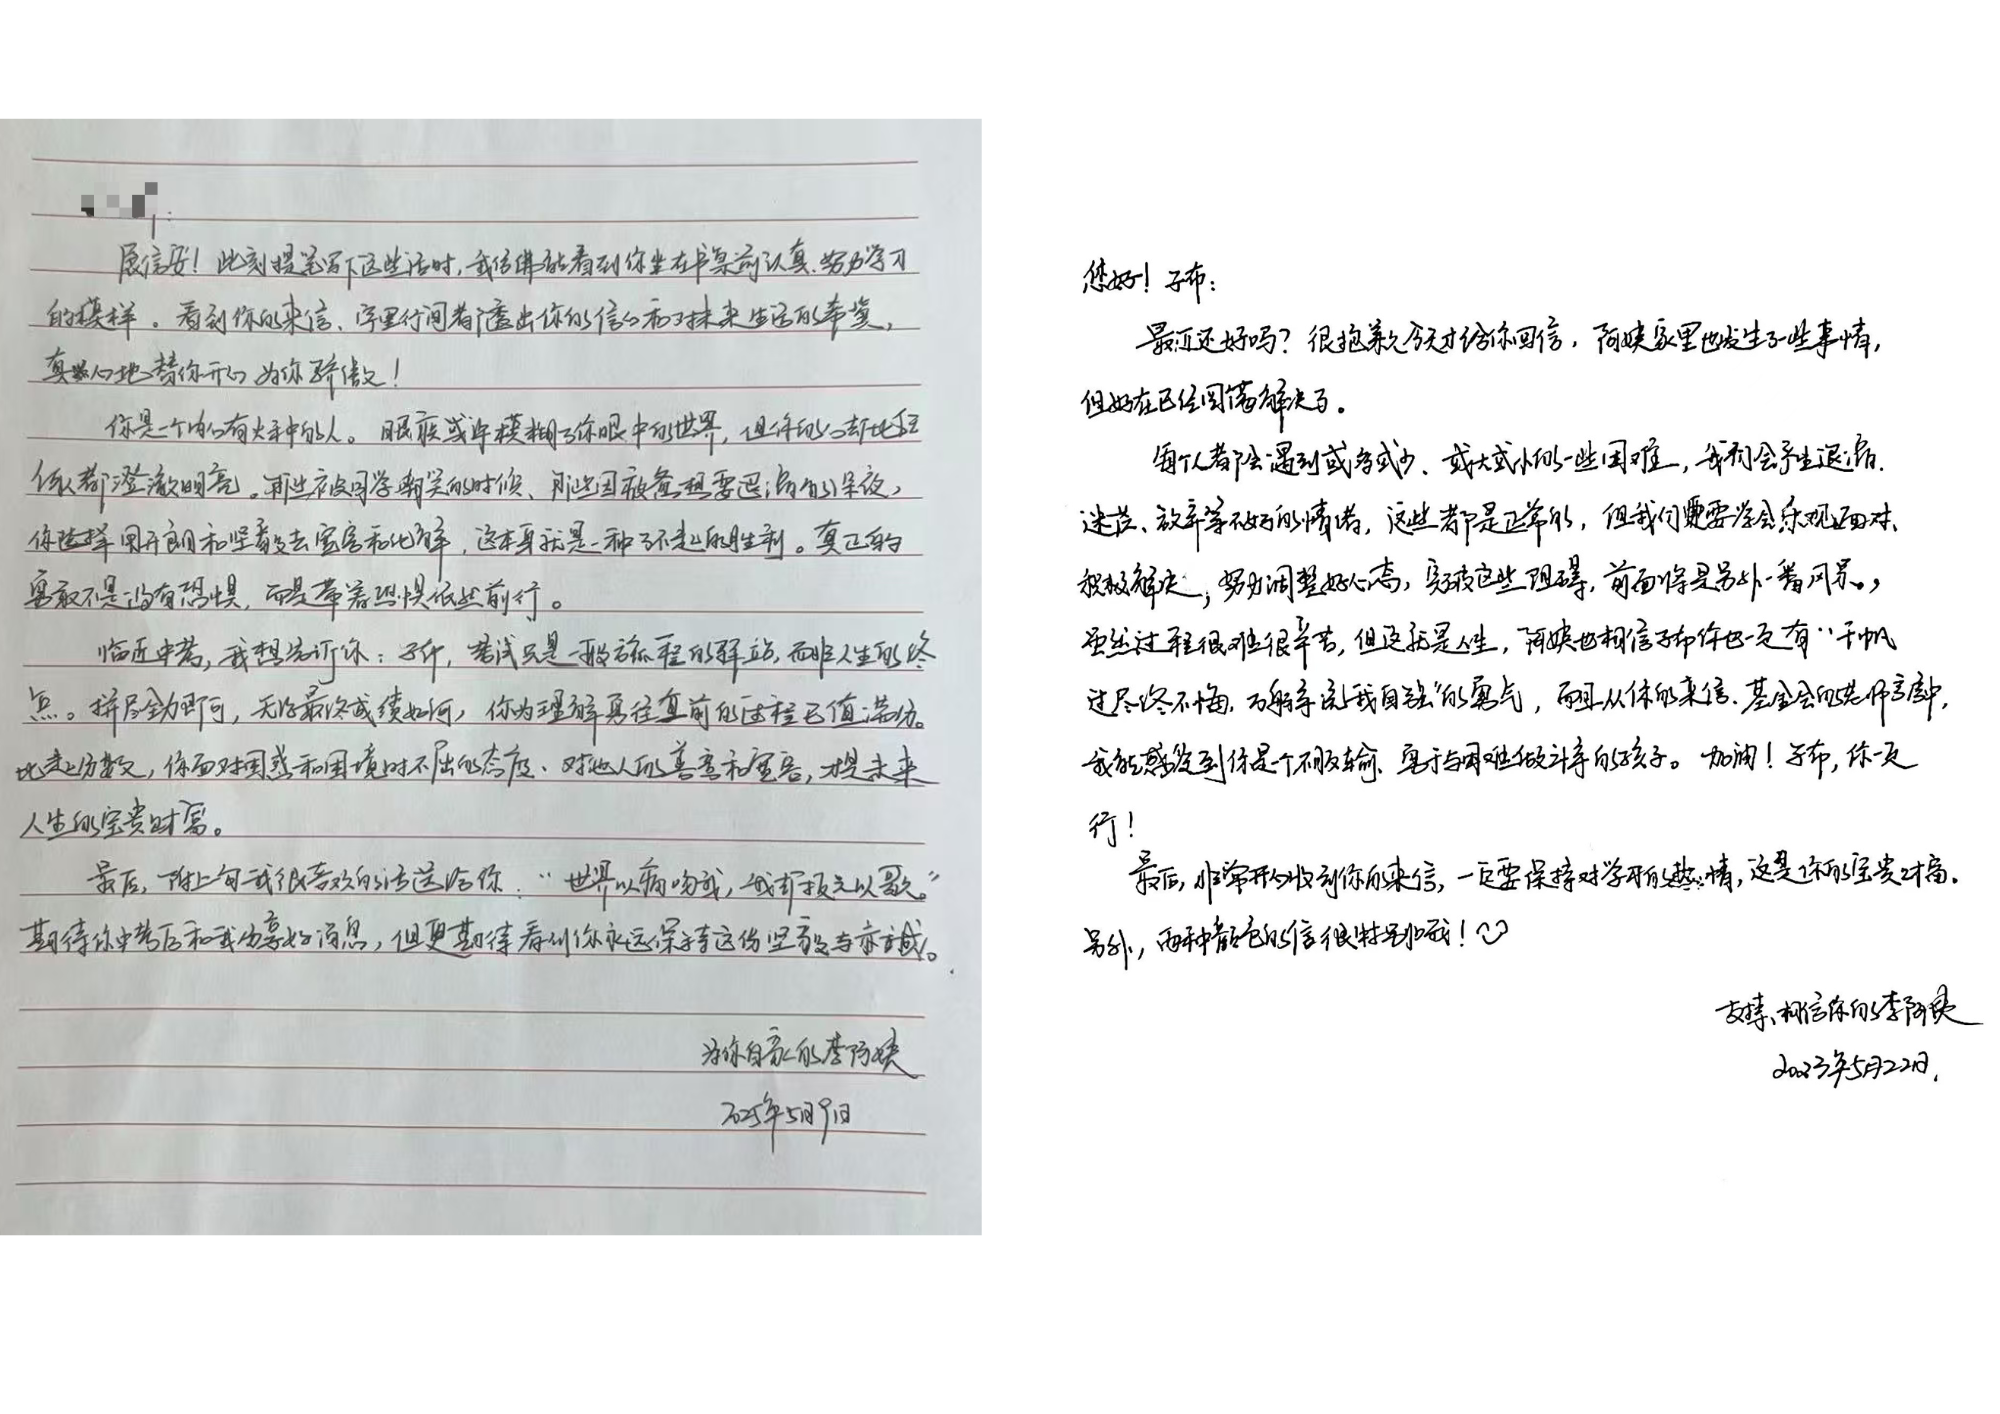 展信安！此刻提笔写下这些话时，我仿佛能看到你坐在书桌前认真、努力学习
的模样。看到你的来信、字里行间都透出你的信心和对未来生活的希冀，
真心地替你开心 为你骄傲！
你是一个内心有火种的人。眼疾或许模糊了你眼中的世界，但你的心却比任
何人都澄澈明亮。那些被同学嘲笑的时候、那些因疲惫想要退缩的深夜，
你选择用开朗和坚毅去宽容和化解，这本身就是一种了不起的胜利。真正的
勇敢不是没有恐惧，而是带着恐惧依然前行。
临近中考，我想告诉你：子布，考试只是一段旅程的驿站，而非人生的终
点。拼尽全力即可，无论最终成绩如何，你为理解勇往直前的过程已值满分。
比起分数，你面对困惑和困境时不屈的态度、对他人的善意和宽容，才是未来
人生的宝贵财富。
最后，附上一句我很喜欢的话送给你："世界以痛吻我，我却报之以歌。"
期待你中考后和我分享好消息，但更期待看到你永远保持这份坚毅与赤诚。
为你自豪的李阿姨
2025年5月9日
您好！子布：
最近还好吗？很抱歉今天才给你回信，阿姨家里也发生了一些事情，
但好在已经圆满解决了。
每个人都会遇到或多或少、或大或小的一些困难，我们会产生退缩、
迷茫、放弃等不好的情绪，这些都是正常的，但我们要学会乐观面对、
积极解决，努力调整好心态，突破这些阻碍，前面将是另外一番风景。，
虽然过程很难很辛苦，但这就是人生，阿姨也相信子布你也一定有"千帆
过尽终不悔，万般辛苦我自强"的勇气，而且从你的来信、基金会的老师言语中，
我能感受到你是个不服输、勇于与困难做斗争的孩子。加油！子布，你一定
行！
最后，非常开心收到你的来信，一定要保持对学习的热情，这是你的宝贵财富。
另外，两种颜色的信很特别哦！
支持、相信你的李阿姨
2023年5月22日.